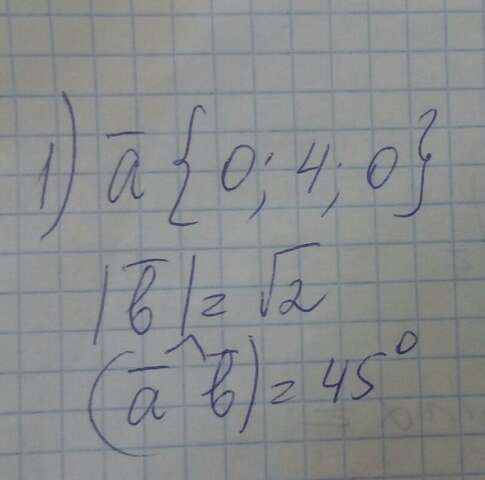 1) a̅ {0; 4; 0}
|b̅| = √2
(a̅ ^ b̅) = 45°